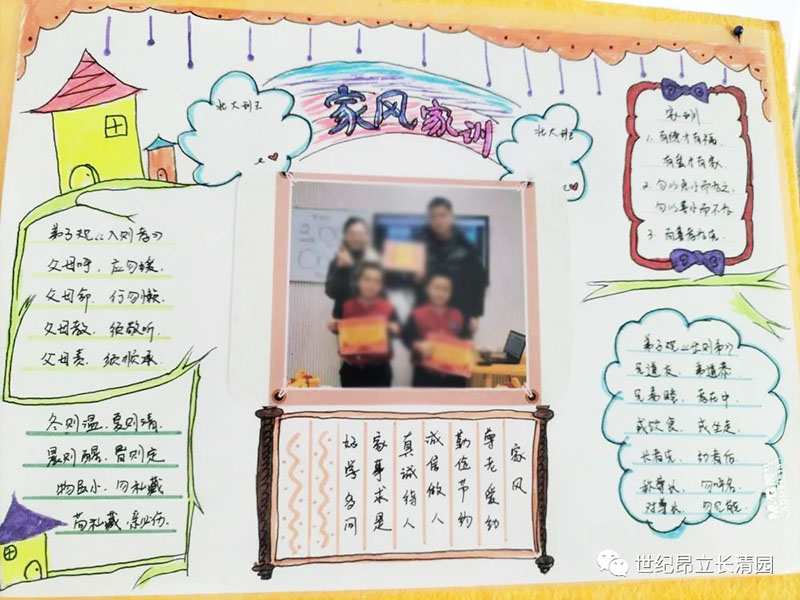 家风家训
北大班
北大班
弟子规《入则孝》
父母呼，应勿缓，
父母命，行勿懒，
父母教，须敬听，
父母责，须顺承
冬则温，夏则凊，
晨则醒，昏则定
物虽小，勿私藏
苟私藏，亲心伤，
家风
尊老爱幼
勤俭节约
诚信做人
真诚待人
家事求是
好学多问
家训
1. 有德才有福，
有善才有家，
2. 勿以恶小而为之，
勿以善小而不为
3. 百善孝为先，
弟子规《出则弟》
兄道友，弟道恭
兄弟睦，孝在中
或饮食，或坐走，
长者先，幼者后，
称尊长，勿呼名
对尊长，勿见能
世纪昂立长清园